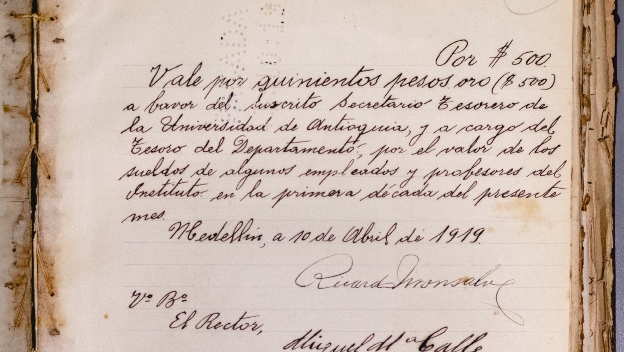 Por $ 500.
Vale por quinientos pesos oro ($ 500)
a favor del suscrito Secretario Tesorero de
la Universidad de Antioquia, y a cargo del
Tesoro del Departamento, por el valor de los
sueldos de algunos empleados y profesores del
Instituto en la primera década del presente
mes.
Medellín, a 10 de Abril de 1919.
Ricard Monsalve
Vº Bº
El Rector,
Miguel Mª Calle